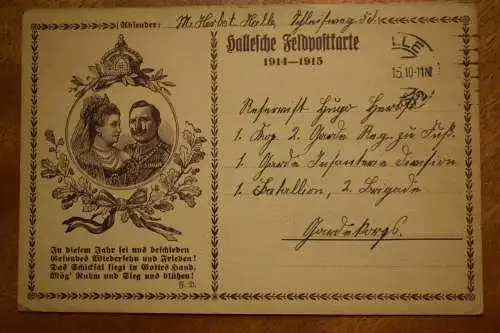 Absender: M. Herbst Halle, Schleifweg 5d.
Hallesche Feldpostkarte
1914–1915
LLE
15.10-11N
Reservist Hugo Herbst
1. Kop. 2. Garde Reg. zu Fuß.
1. Garde Infanterie division
1. Batallion, 2. Brigade
Gardekorps.
In diesem Jahr sei uns beschieden
Gesundes Wiedersehn und Frieden!
Das Schicksal liegt in Gottes Hand,
Mög' Ruhm und Sieg uns blühen!
F. D.